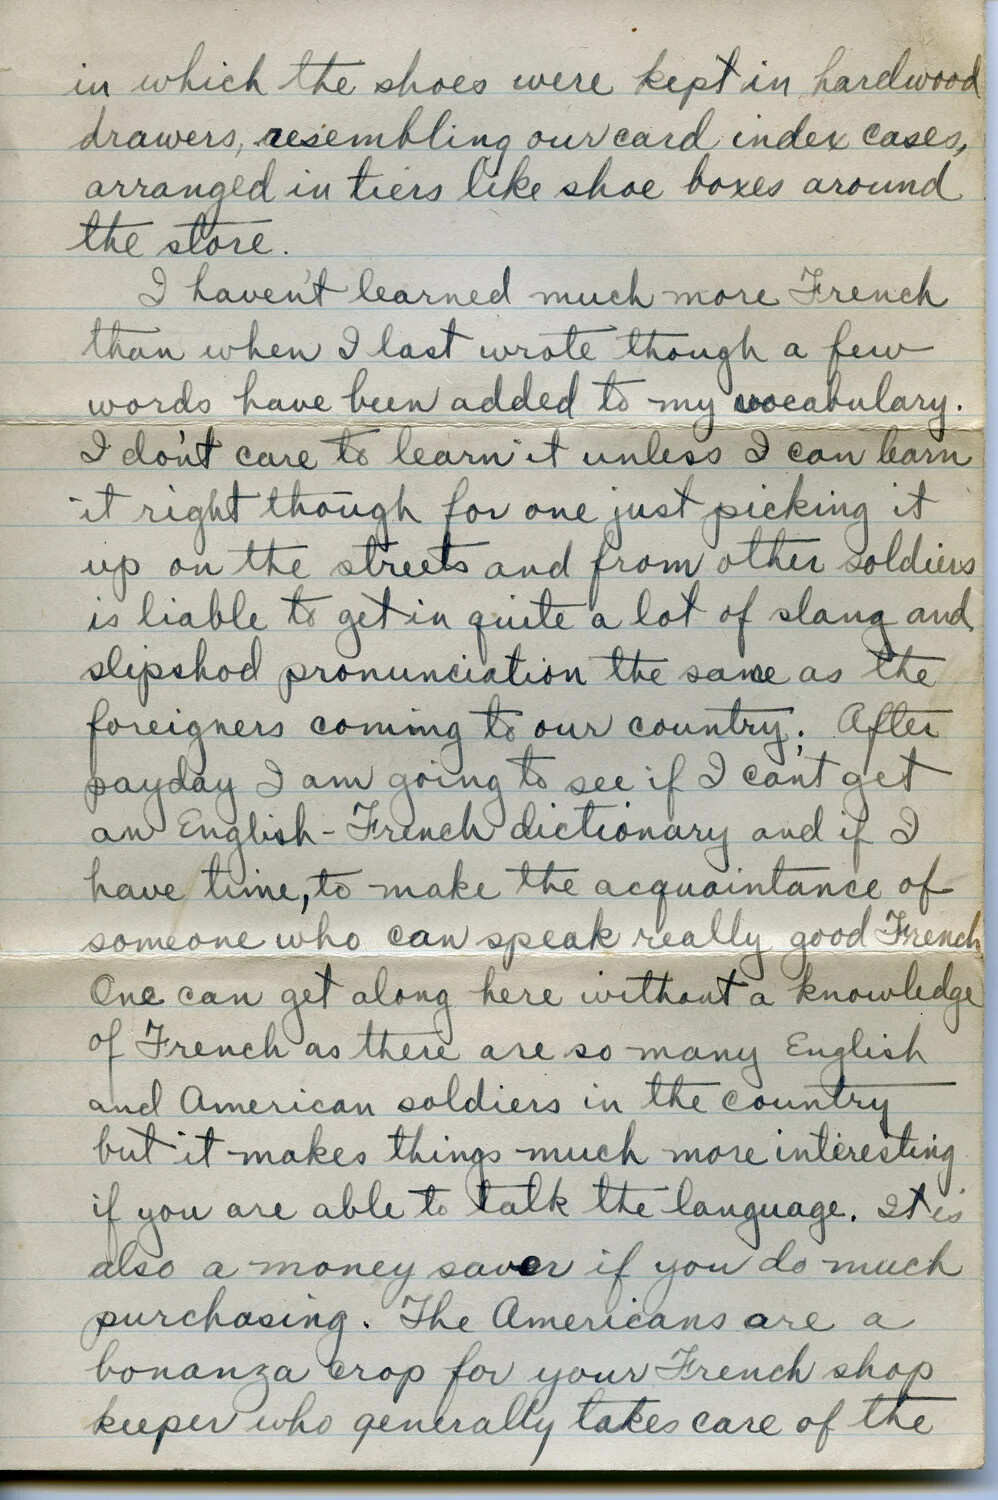 in which the shoes were kept in hardwood
drawers, resembling our card index cases,
arranged in tiers like shoe boxes around
the store.
I haven't learned much more French
than when I last wrote though a few
words have been added to my vocabulary.
I don't care to learn it unless I can learn
it right though for one just picking it
up on the streets and from other soldiers
is liable to get in quite a lot of slang and
slipshod pronunciation the same as the
foreigners coming to our country. After
payday I am going to see if I can't get
an English-French dictionary and if I
have time, to make the acquaintance of
someone who can speak really good French
One can get along here without a knowledge
of French as there are so many English
and American soldiers in the country
but it makes things much more interesting
if you are able to talk the language. It is
also a money saver if you do much
purchasing. The Americans are a
bonanza crop for your French shop
keeper who generally takes care of the